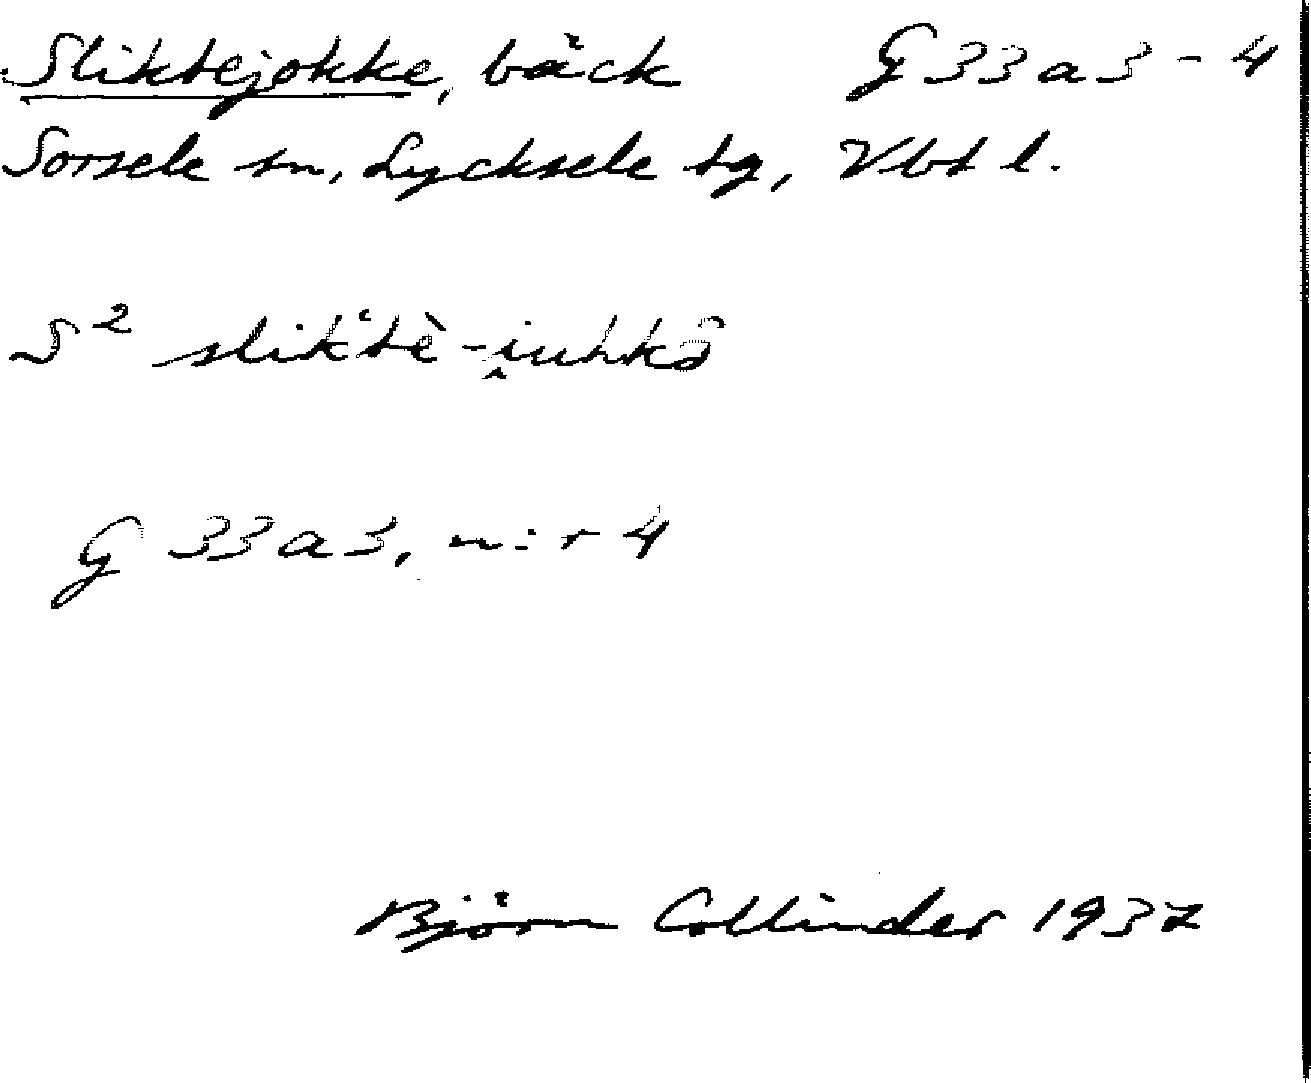 Sliktejokke, bäck G 33 a 3 - 4
Sorsele sn, Lycksele tg, Vbt l.
S² slik‘tè-i̭uhkô
G 33 a 3, n:r 4
Björn Collinder 1937